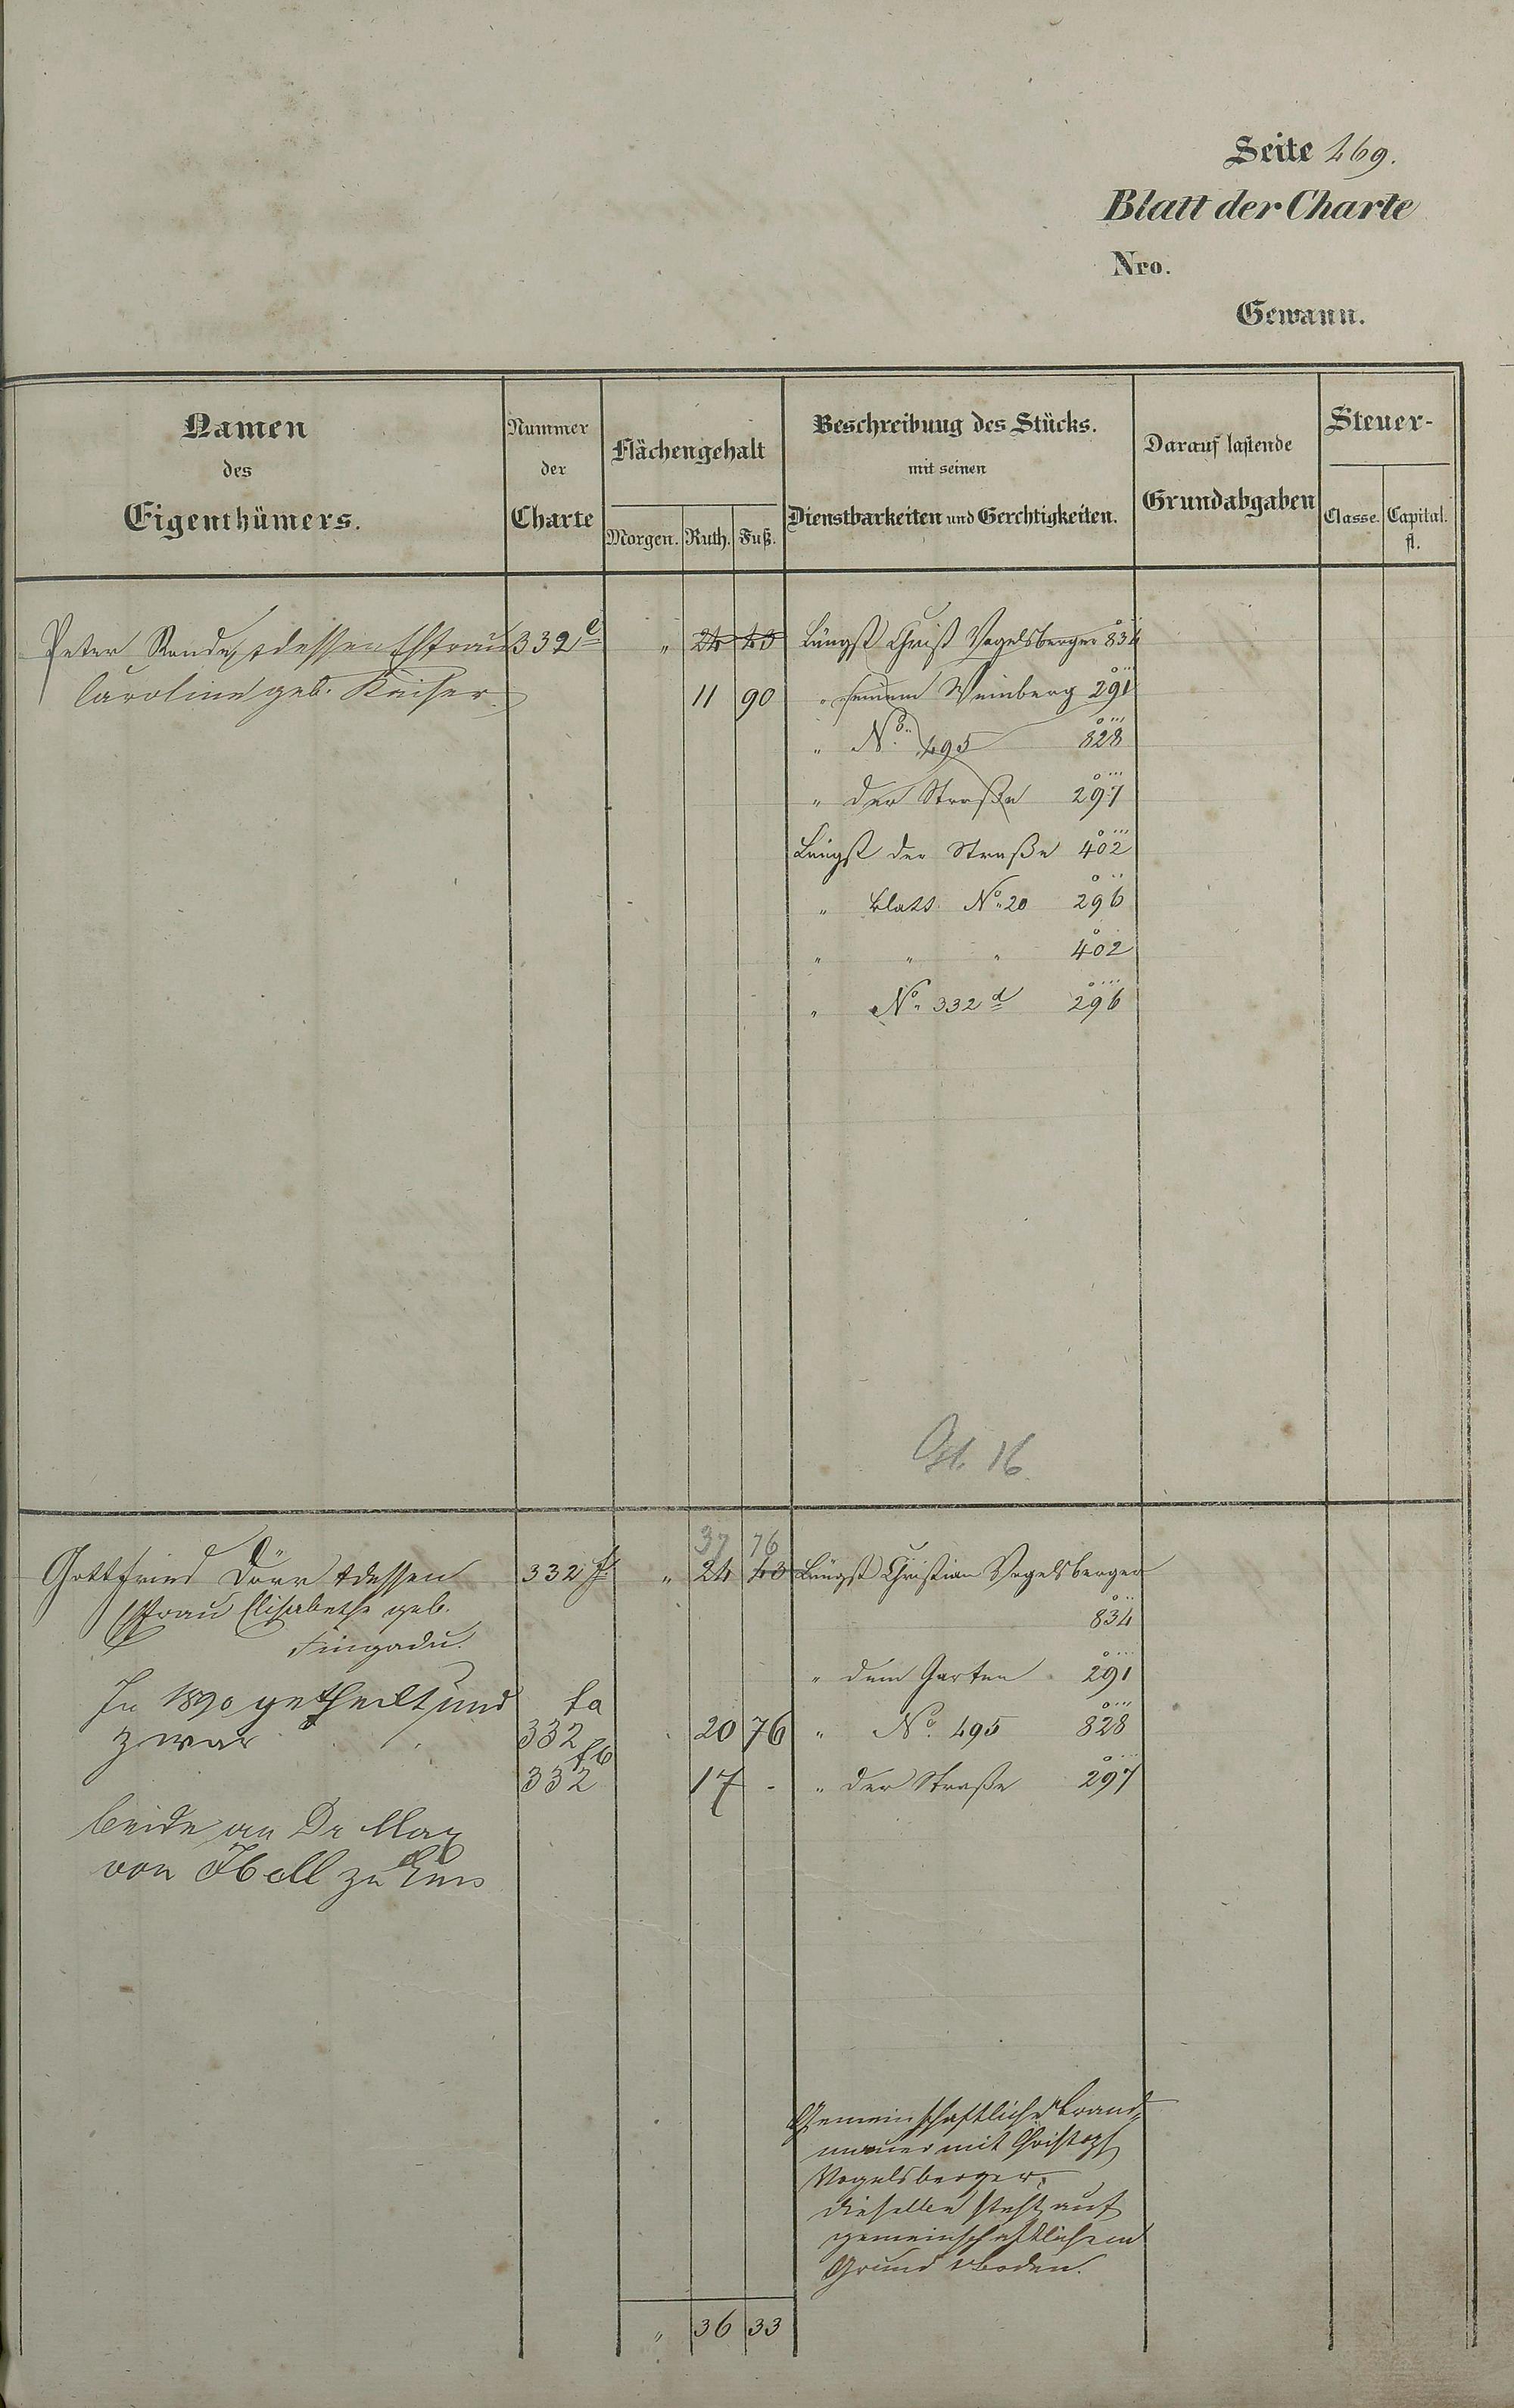 Seite 469.
Blatt der Charte
Nro.
Gewann.
Namen des Eigenthümers.
Nummer der Charte
Flächengehalt
Morgen. Ruth. Fuß.
Beschreibung des Stücks. mit seinen Dienstbarkeiten und Gerchtigkeiten.
Darauf lastende Grundabgaben
Steuer-
Classe. Capital. fl.
Peter dessen Ehefrau 332 e " 24 43 Längst Christ Vogelsberger 834
Caroline geb. Kaiser. 11 90 " seinem Weinberg 291
" No. 495 828
" der Straße 297
Längst der Straße 402
" Blatt No. 20 296
" " " 402
" No. 332 d 296
16
37 76
Gottfried Dörr & dessen 332 f. " 24 43 Längst Christian Vogelsberger
Frau Elisabethe geb. 834
" dem Garten 291
In 1890 getheilt und fa
zwar 332 20 76 " No. 495 828
fb
332 17 - " der Straße 297
beide an Dr Max
von Ibell zu Ems
Gemeinschaftliche Brand-
mauer mit Christoph
Vogelsberger.
dieselbe steht auf
gemeinschaftlichem
Grund & Boden.
" 36 33